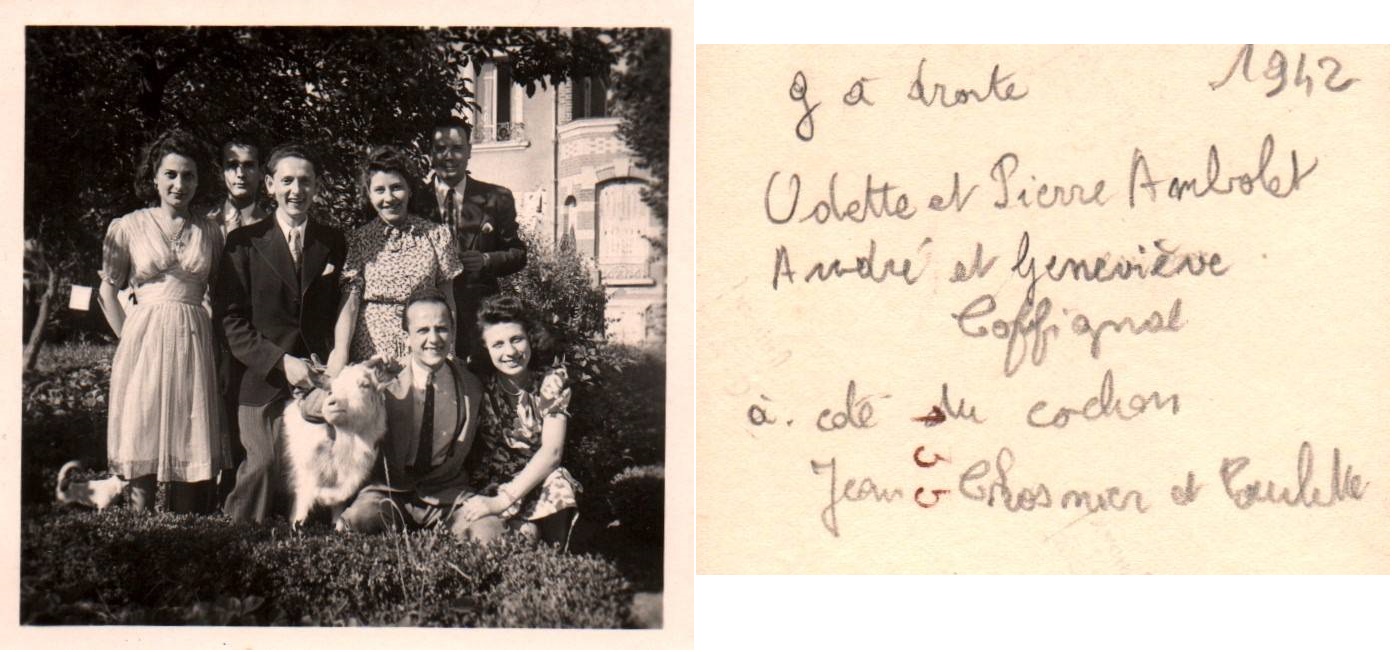 g à droite 1942
Odette et Pierre Ambolet
André et Geneviève
Coffignal
à coté du cochon
Jean Chosmier et Paulette